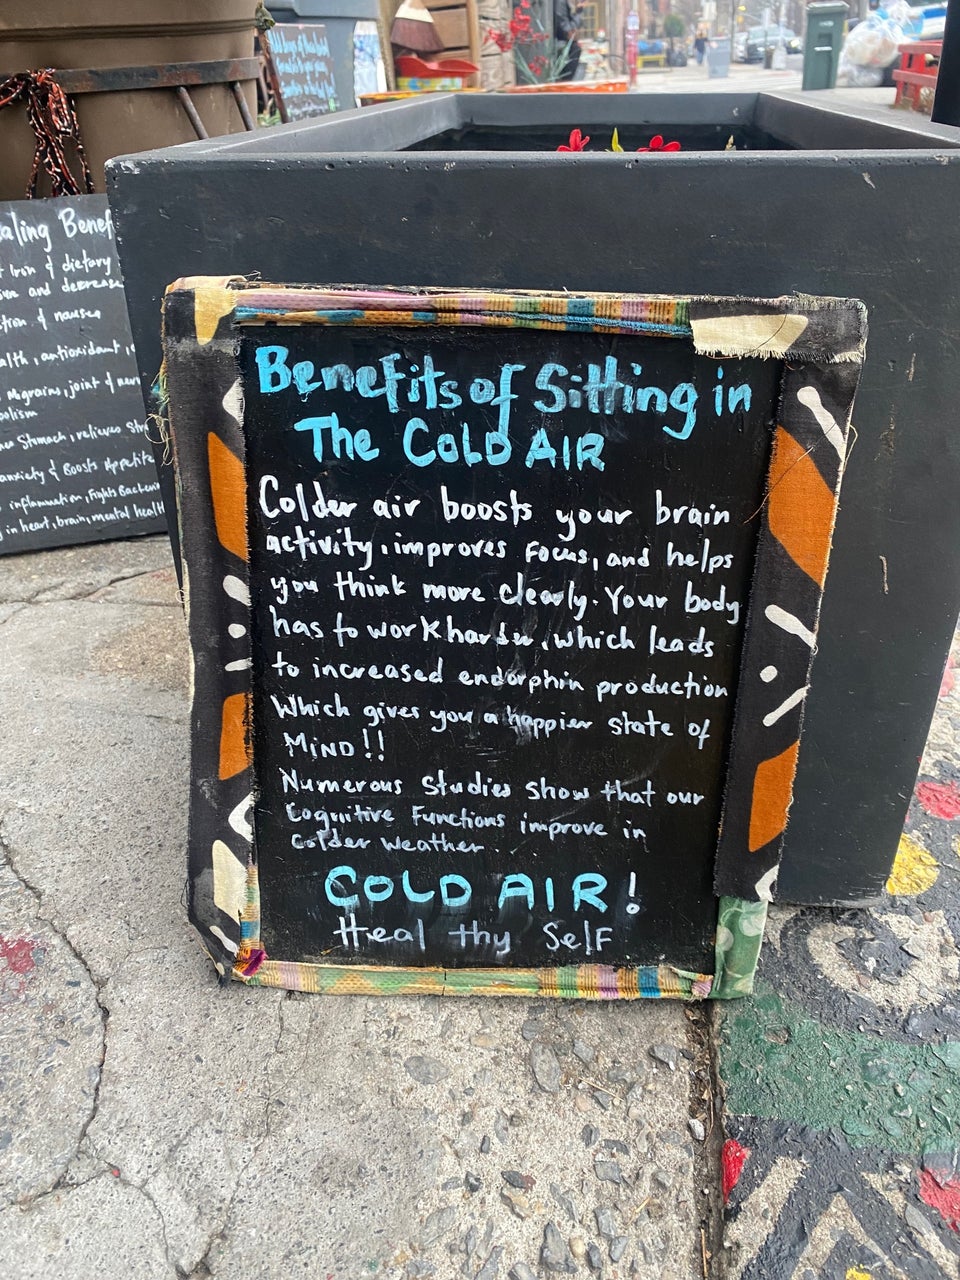 Benefits of Sitting in
The COLD AIR
Colder air boosts your brain
activity, improves Focus, and helps
you think more clearly. Your body
has to work harder, which leads
to increased endorphin production
Which gives you a happier state of
MIND!!
Numerous Studies show that our
Cognitive Functions improve in
Colder Weather.
COLD AIR!
Heal thy Self
aling Benef
Iron & dietary
and decrease
& nausea
alth, antioxidant,
Migrains, joint &
olism
Stomach, relieves Str
anxiety & Boosts Appetite
inflammation, Fights Bacteri
in heart, brain, mental health